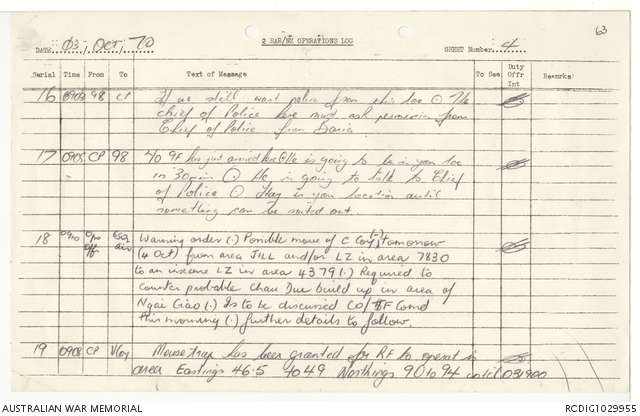 63
2 RAR/NZ OPERATIONS LOG
DATE: 03, OCT, 70 SHEET Number 4
Serial Time From To Text of Message To See Duty Offr Int Remarks
16 0903 98 If we still want police from this loc O The
chief of Police here must ask permission from
Chief of Police from Baria.
17 0905 CP 98 has just arrived here is going to be in your loc
in 30min O He is going to talk to Chief
of Police O Stay in your location until
something can be sorted out
18 0910 Ops Off air Warning order (.) Possible move of C Coy (-) tomorrow
(4 Oct) from area JILL and/or LZ in area 7830
to an LZ in area 4379 (.) Required to
counter probable Chau Duc build up in area of
Ngai Giao (.) Is to be discussed CO/TF Comd
this morning (.) further details to follow.
19 0908 CP V Coy Mousetrap has been granted for RF to operate in
area Eastings 46.5 to 49 Northings 90 to 94 until 031900
AUSTRALIAN WAR MEMORIAL RCDIG1029955